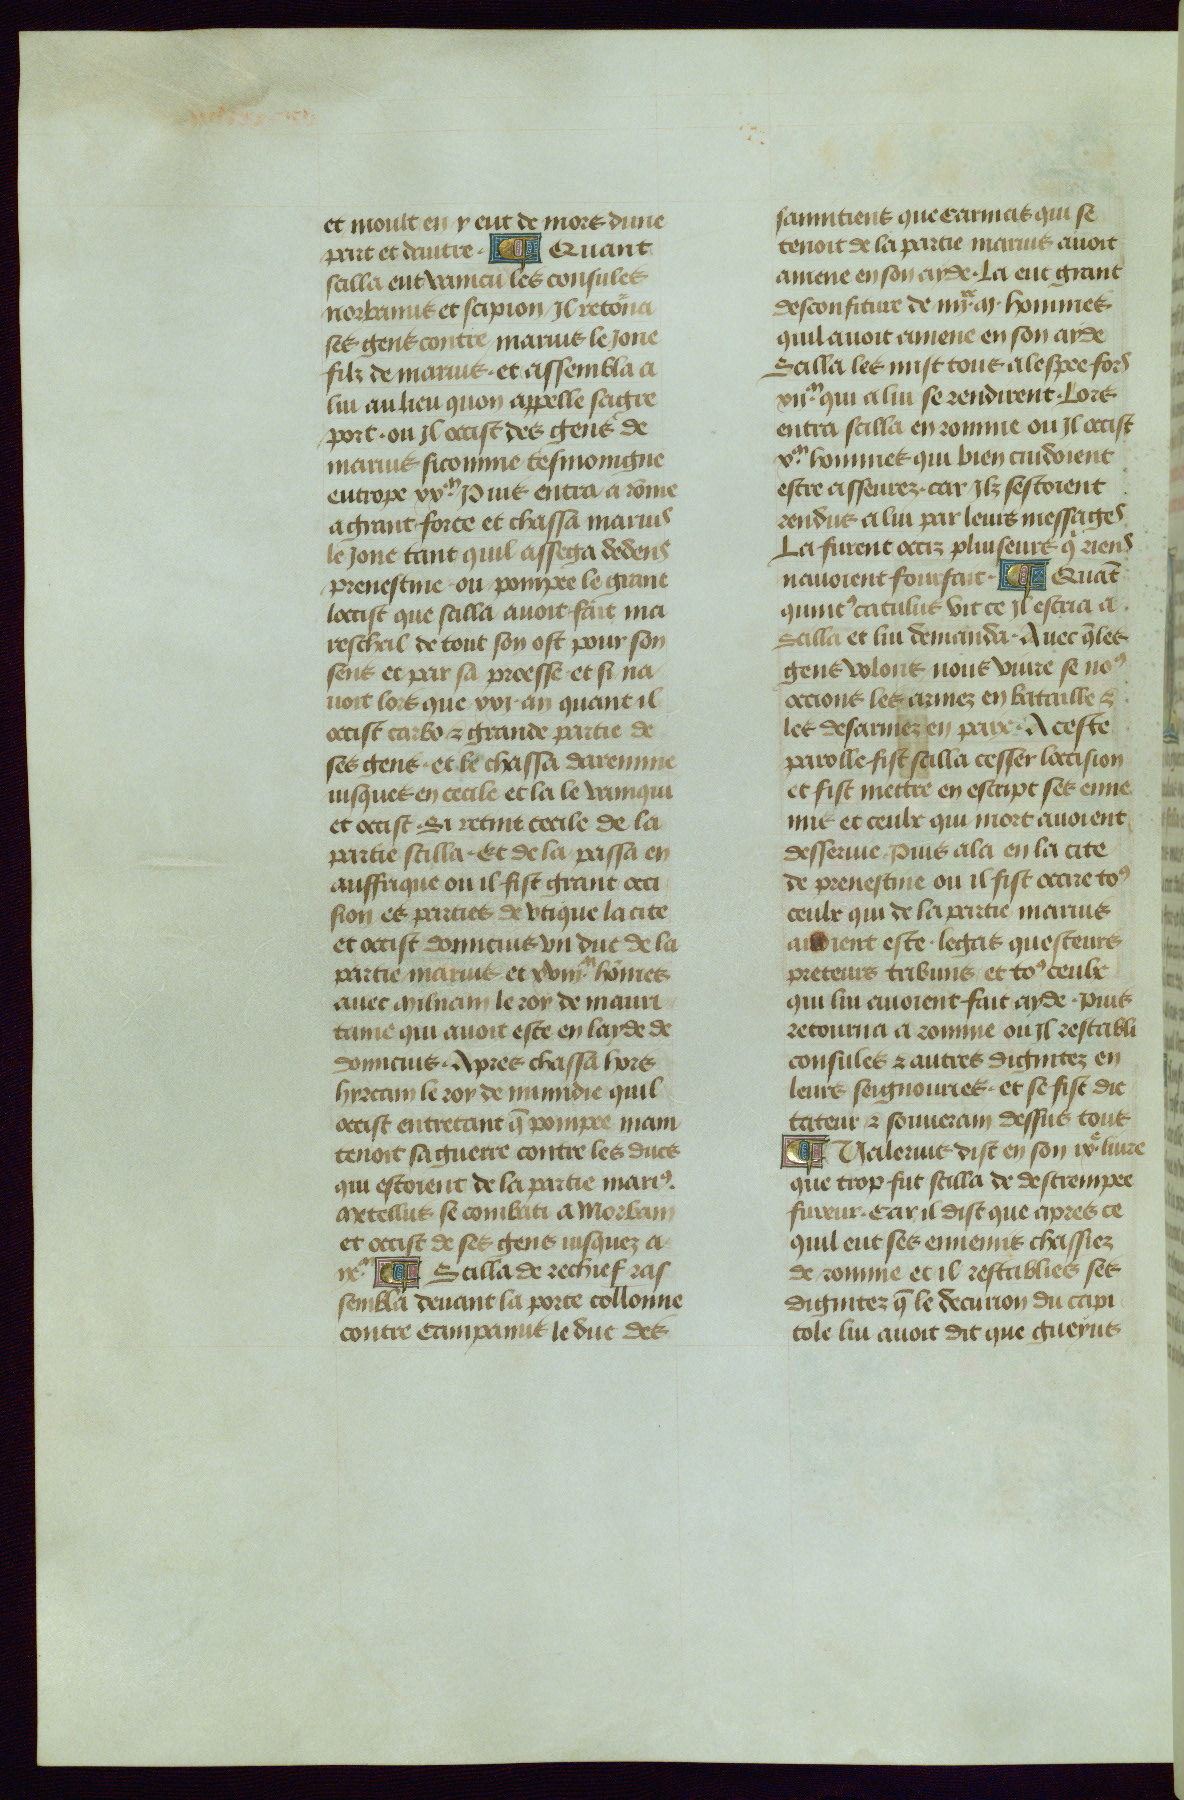 et moult en y eut de mors dune
part et dautre · Quant
scilla eut vaincu les consules
norbanus et scipion Jl retoũna
ses gens contre marius le Jone
filz de marius · et assembla a
lui au lieu quon appelle sagre
port · ou Jl occist des gens de
marius sicomme tesmoingne
eutrope xxᵐ. Puis entra a rõme
a grant force et chassa marius
le Jone tant quil assega dedens
prenestine ou pompee le grant
loccist que scilla auoit fait ma
reschal de tout son ost pour son
sens et par sa proesse et si na
uoit lors que xxj an quant il
occist carbo ⁊ grande partie de
ses gens · et le chassa daremine
iusques en cecile et la le vainqui
et occist · Si retint cecile de la
partie scilla · Et de la passa en
auffrique ou il fist grant occi
sion es parties de vtique la cite
et occist domicius vn duc de la
partie marius et xviijᵐ hõmes
auec le roy de mauri
tanie qui auoit este en layde de
domicius · Apres chassa hors
hyrcam le roy de numidie quil
occist entretant q̃ pompee main
tenoit sa guerre contre les ducs
qui estoient de la partie mariꝰ.
metellus se combati a Norbam
et occist de ses gens iusquez a
ixᵐ. Scilla de rechief ras
sembla deuant la porte collonne
contre Campanus le duc des
samitiens que Carinas qui se
tenoit de la partie marius auoit
amene en son ayde · La eut grant
desconfiture de iiijˣˣ·m· hommes
quil auoit amene en son ayde
Scilla les mist tous a lespee fors
xijᵐ qui a lui se rendirent · Lors
entra scilla en romme ou Jl occist
vᵐ hommes qui bien cuidoient
estre asseurez · car Jlz sestoient
rendus a lui par leurs messages
La furent occiz pluiseurs q̃ riens
nauoient fourfait · Quãt
quintꝰ catulus vit ce Jl escria a
Scilla et lui demanda · Auec q̃les
gens volons nous viure se noꝰ
occions les armez en bataille ⁊
les desarmez en paix · A ceste
parolle fist scilla cesser loccision
et fist mettre en escript ses enne
mis et ceulx qui mort auoient
desseruie · Puis ala en la cite
de prenestine ou il fist occire toꝰ
ceulx qui de la partie marius
auoient este · legas questeurs
preteurs tribuns et toꝰ ceulx
qui lui auoient fait ayde · Puis
retourna a romme ou Jl restabli
consules ⁊ autres dignitez en
leurs seignouries · et se fist dic
tateur ⁊ souuerain dessus tous
Valerius dist en son ixᵉ liure
que trop fut scilla de destrempee
fureur · Car il dist que apres ce
quil eut ses ennemis chassiez
de romme et il restablies ses
dignitez q̃ le decurion du capi
tole lui auoit dit que gueyus